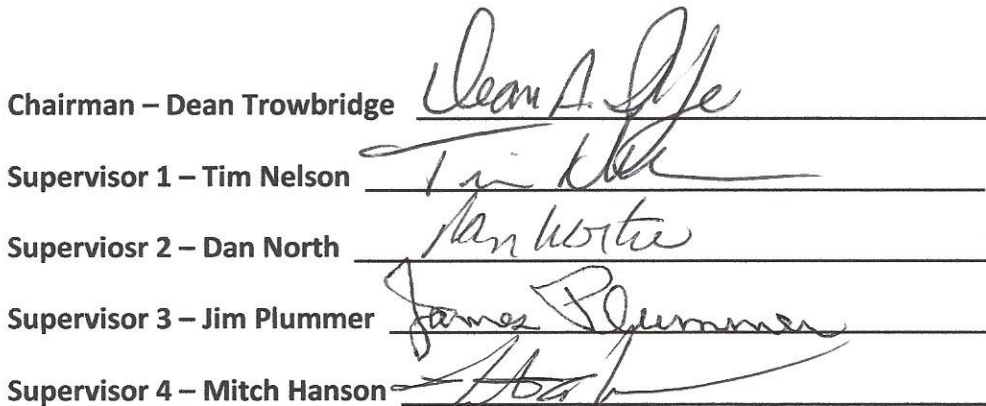 Chairman – Dean Trowbridge Dean A.
Supervisor 1 – Tim Nelson Tim
Superviosr 2 – Dan North Dan
Supervisor 3 – Jim Plummer James Plummer
Supervisor 4 – Mitch Hanson